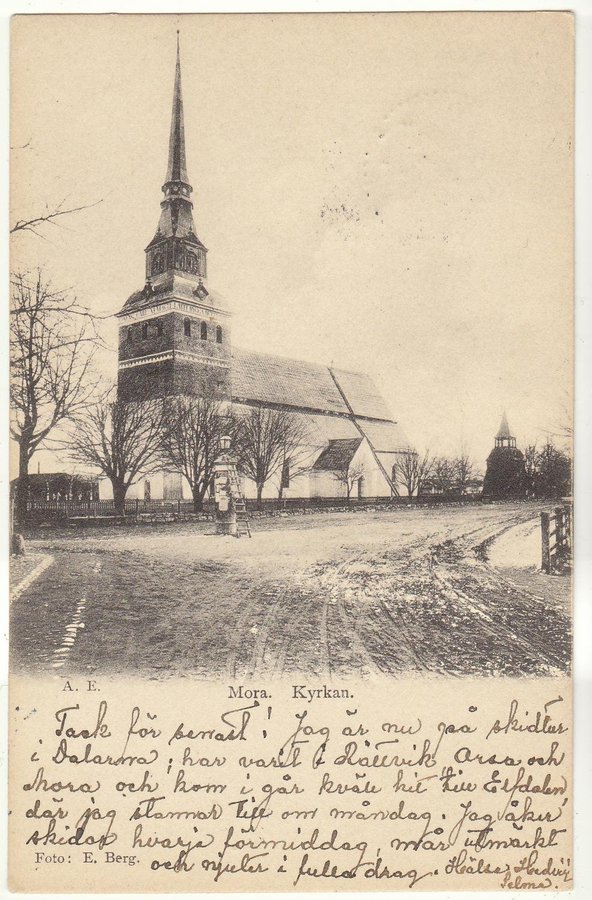 A. E.
Mora. Kyrkan.
Tack för senast! Jag är nu på skidtur
i Dalarna; har varit i Rättvik, Orsa och
Mora och kom i går kväll hit till Elfdalen,
där jag stannar till om måndag. Jag åker
skidor hvarje förmiddag, mår utmärkt
Foto: E. Berg.
och njuter i fulla drag. Hälsa Hedvig
Selma.